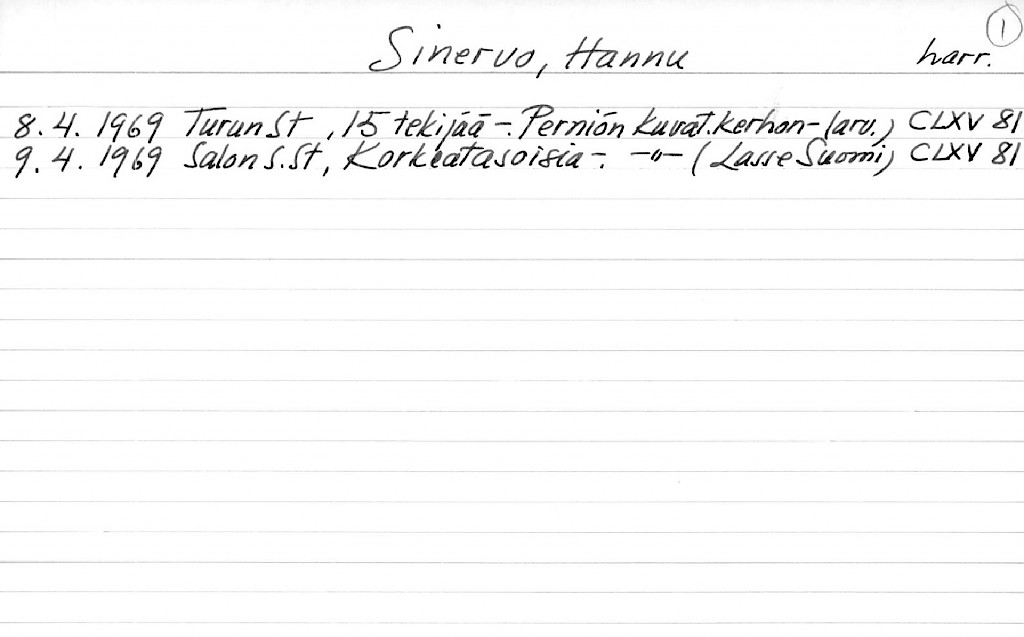 1
Sinervo, Hannu harr.
8.4. 1969 Turun St, 15 tekijää -. Perniön kuvat.kerhon- (arv.) CLXV 81
9.4. 1969 Salon S.St, Korkeatasoisia -. -"- (Lasse Suomi) CLXV 81